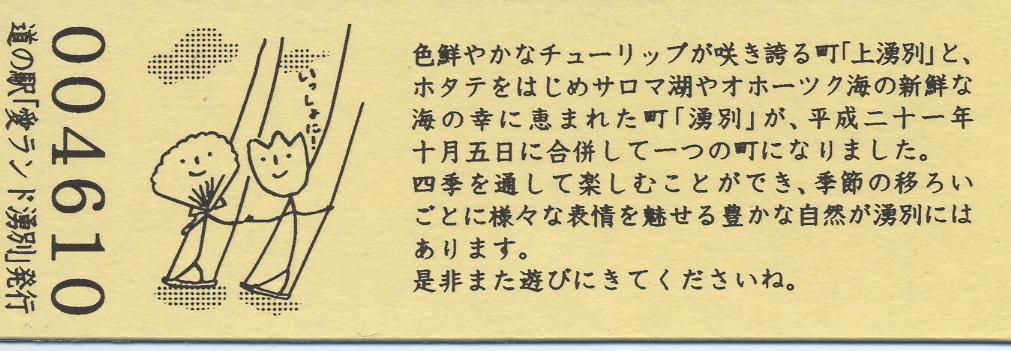 004610
道の駅「愛ランド湧別」発行
いっしょに…
色鮮やかなチューリップが咲き誇る町「上湧別」と、
ホタテをはじめサロマ湖やオホーツク海の新鮮な
海の幸に恵まれた町「湧別」が、平成二十一年
十月五日に合併して一つの町になりました。
四季を通して楽しむことができ、季節の移ろい
ごとに様々な表情を魅せる豊かな自然が湧別には
あります。
是非また遊びにきてくださいね。